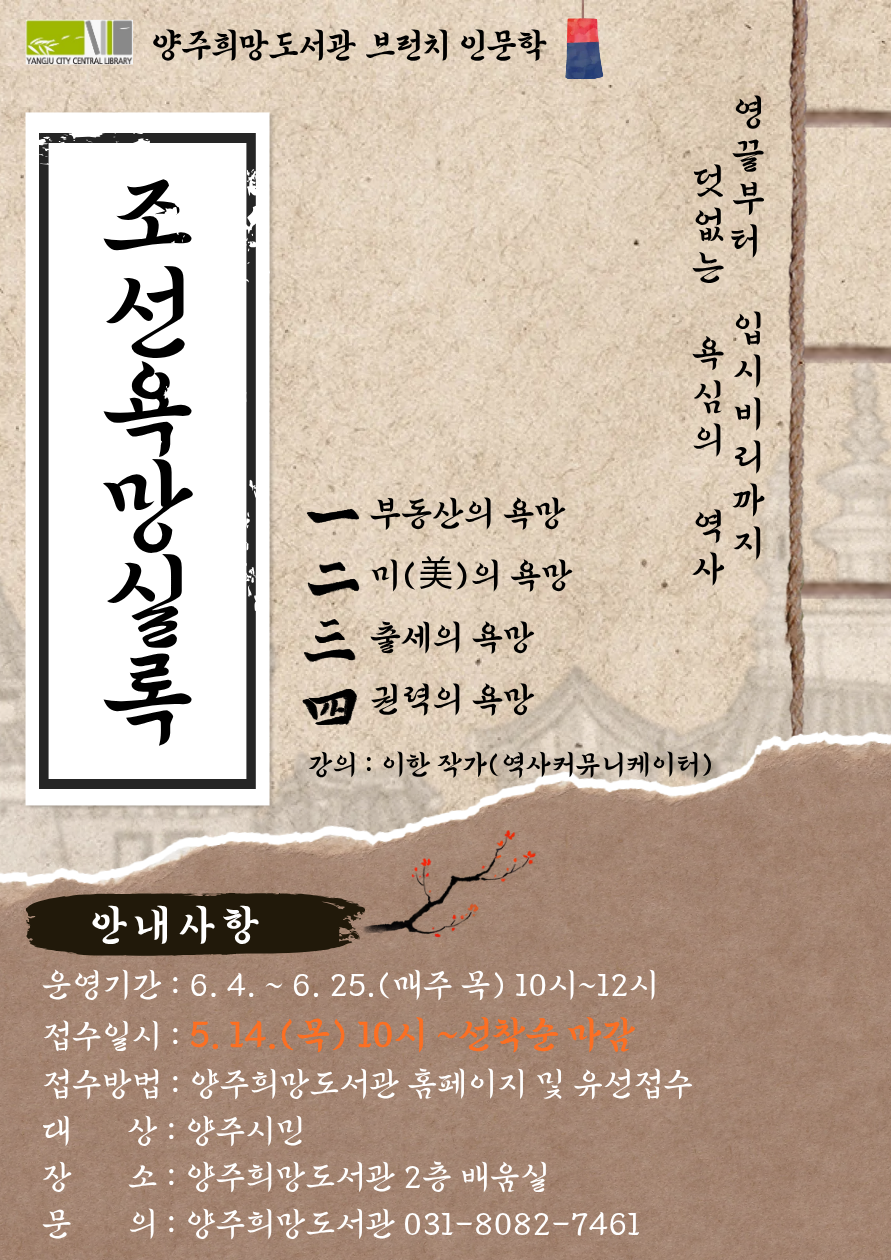 YANGJU CITY CENTRAL LIBRARY
양주희망도서관 브런치 인문학
조선욕망실록
영끌부터 입시비리까지
덧없는 욕심의 역사
一 부동산의 욕망
二 미(美)의 욕망
三 출세의 욕망
四 권력의 욕망
강의 : 이한 작가(역사커뮤니케이터)
안내사항
운영기간 : 6. 4. ~ 6. 25.(매주 목) 10시~12시
접수일시 : 5. 14.(목) 10시 ~선착순 마감
접수방법 : 양주희망도서관 홈페이지 및 유선접수
대 상 : 양주시민
장 소 : 양주희망도서관 2층 배움실
문 의 : 양주희망도서관 031-8082-7461